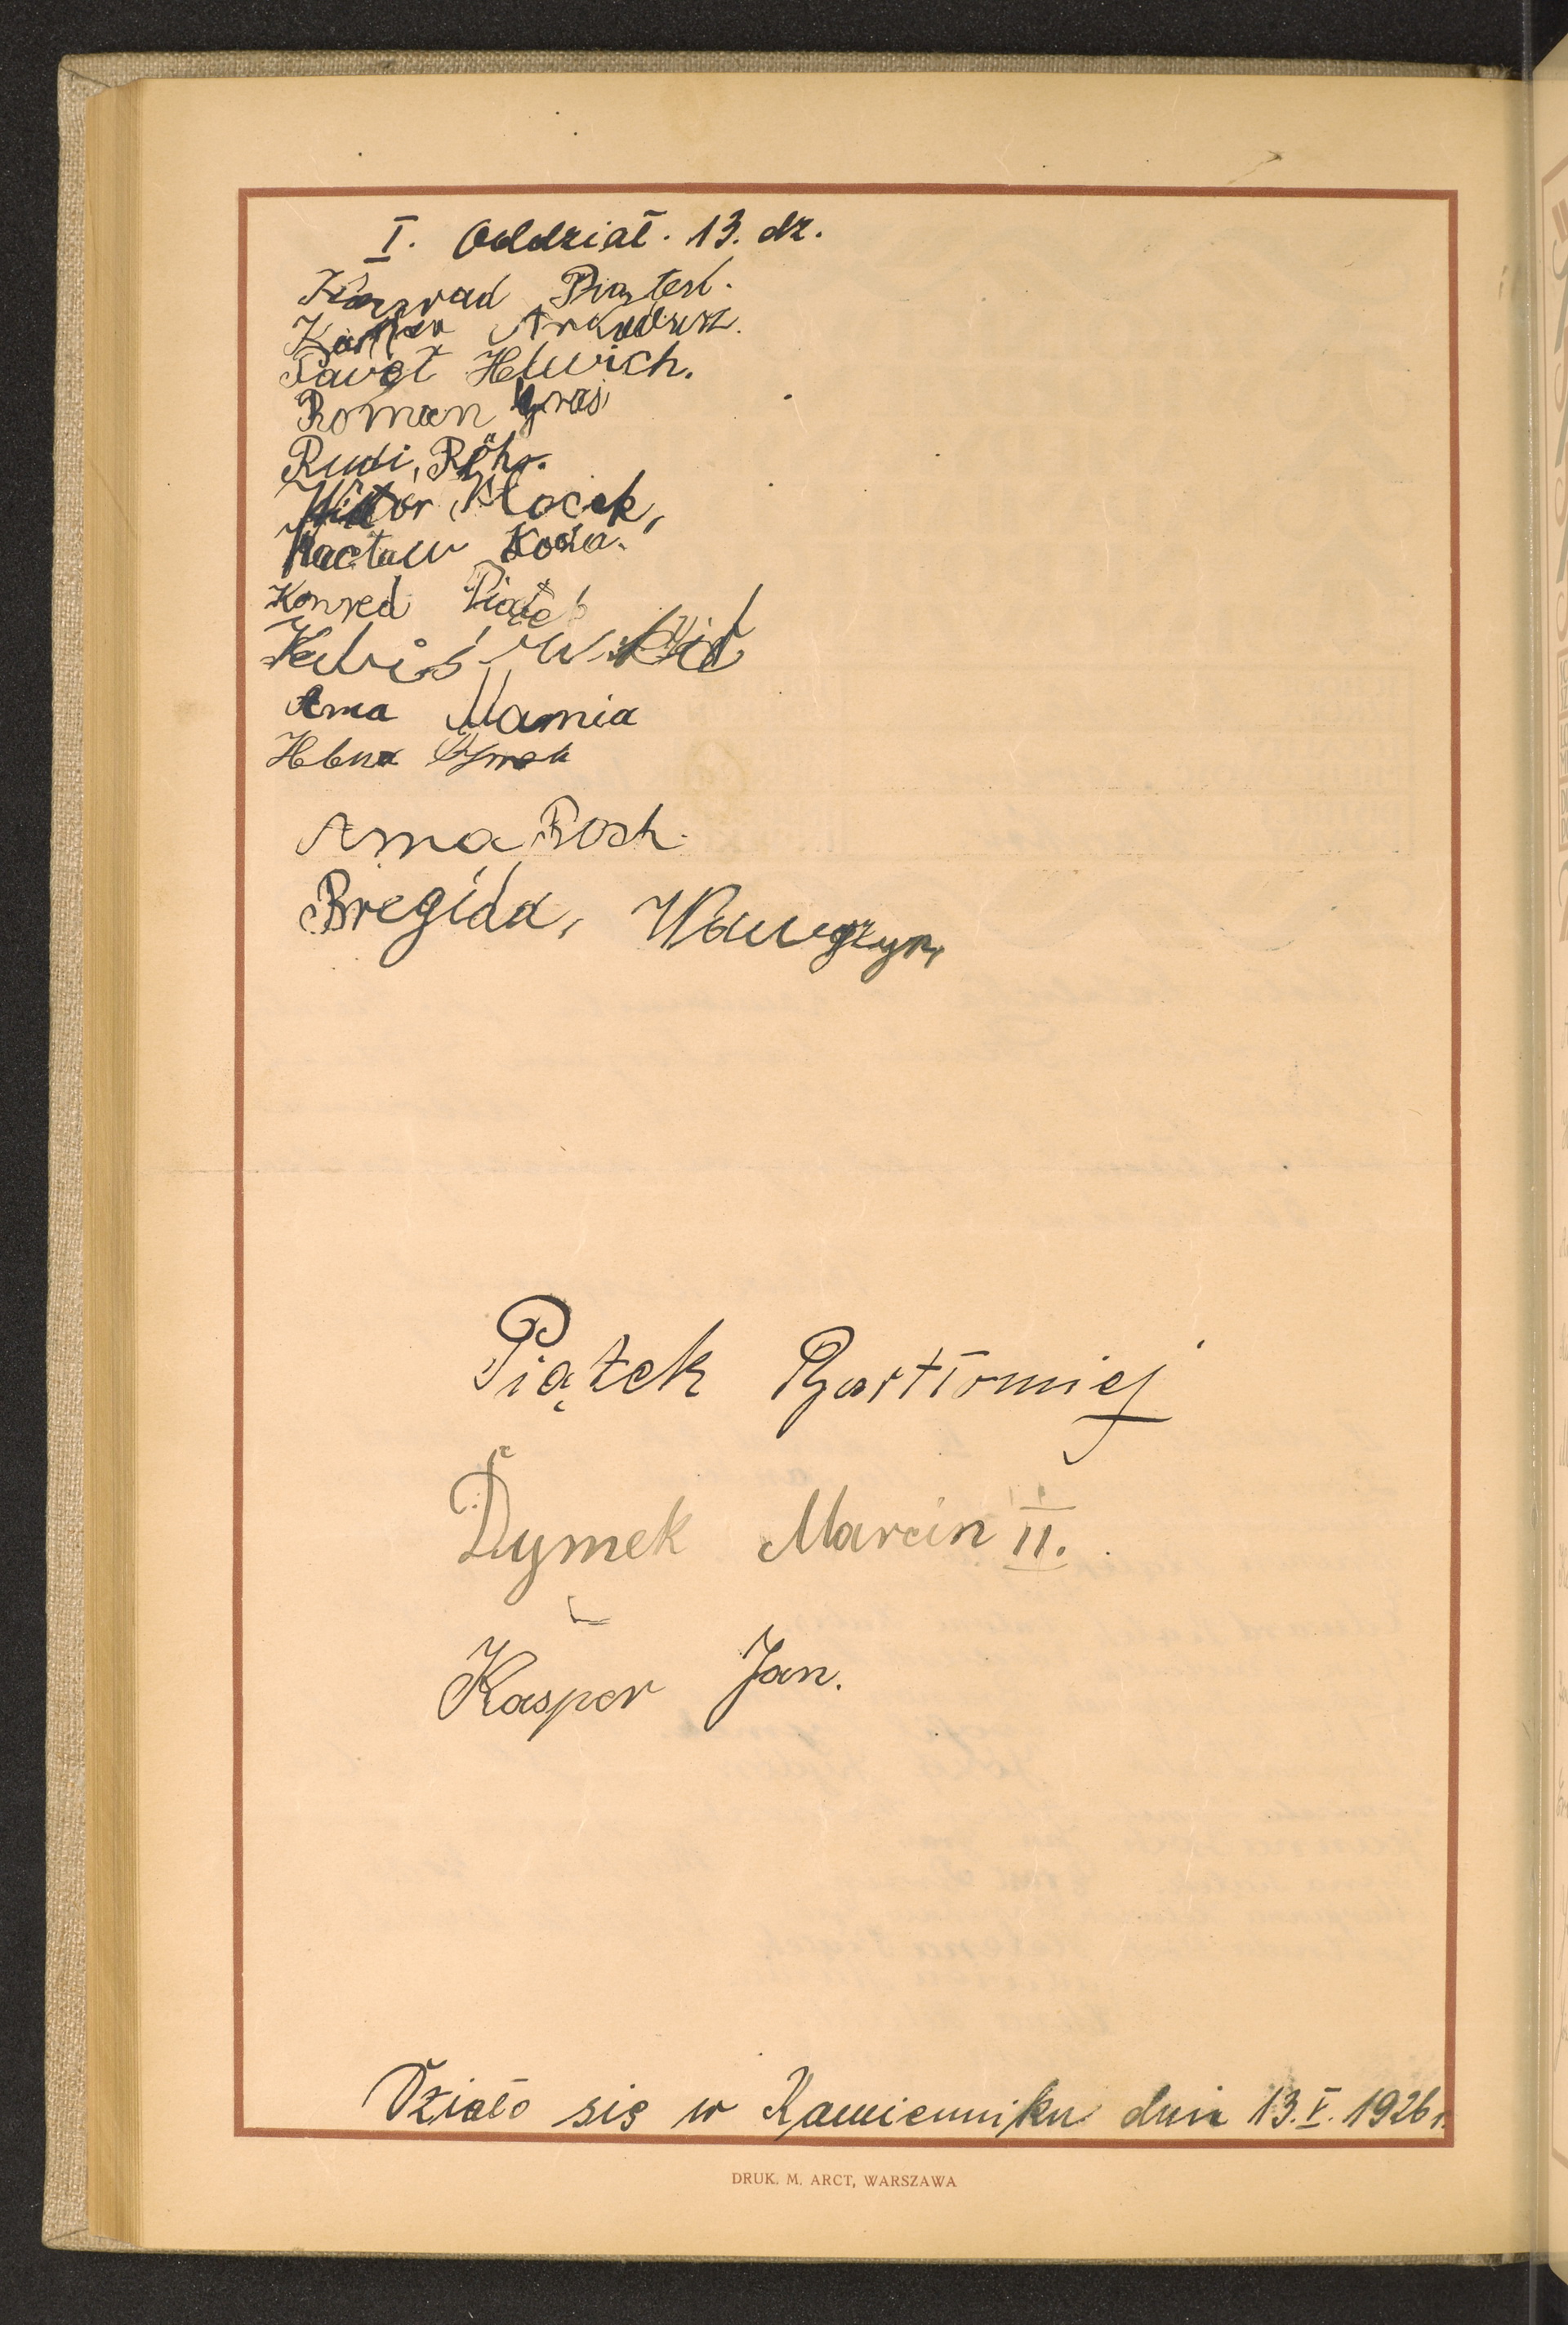 I. Oddział. 13. dz.
Konrad
Kasper Arkadiusz.
Paweł Helwich.
Roman Gras
Rudi, Röhr.
Wiktor Klocek,
Wacław Kosla.
Konred Piątek
Kubiś
Anna Mamia
Helena Dymek
Anna Rosh.
Bregida, Wawrzyn,
Piątek Bartłomiej
Dymek Marcin II.
Kasper Jan.
Działo się w Kamienniku dnia 13. V. 1926 r.
DRUK. M. ARCT, WARSZAWA